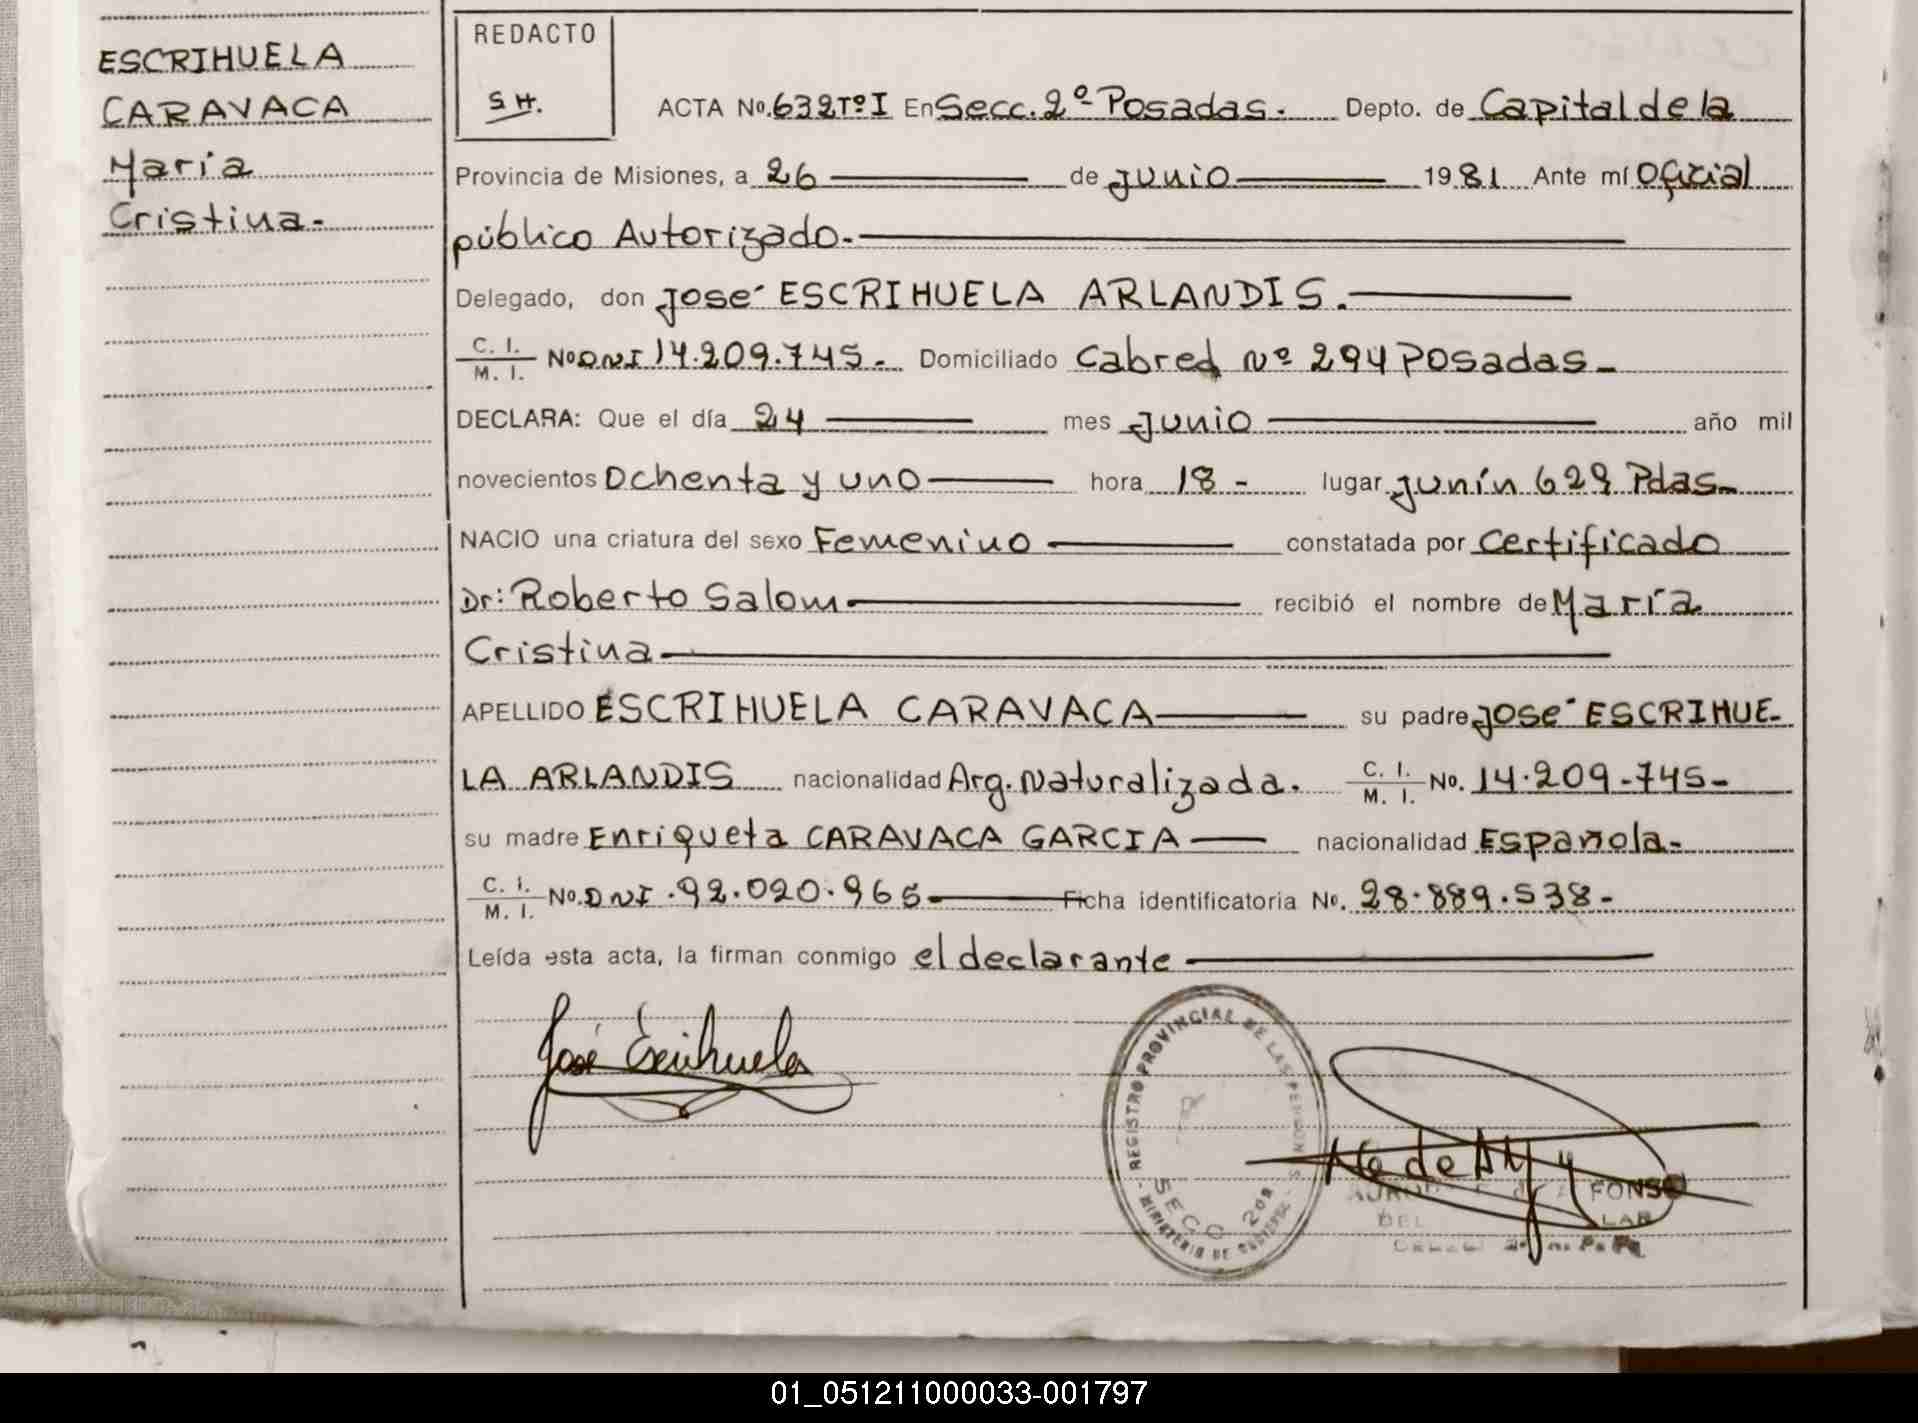 ESCRIHUELA
CARAVACA
María
Cristina.
REDACTO
S H.
ACTA No. 632 Tº I En Secc. 2º Posadas. Depto. de Capital de la
Provincia de Misiones, a 26 de junio 1981 Ante mí Oficial
público Autorizado.
Delegado, don José ESCRIHUELA ARLANDIS.
C. I. / M. I. No DNI 14.209.745. Domiciliado Cabred Nº 294 Posadas
DECLARA: Que el día 24 mes junio año mil
novecientos Ochenta y uno hora 18 - lugar junín 629 Pdas
NACIO una criatura del sexo Femenino constatada por Certificado
Dr: Roberto Salom recibió el nombre de María
Cristina
APELLIDO ESCRIHUELA CARAVACA su padre José ESCRIHUE-
LA ARLANDIS nacionalidad Arg. Naturalizada. C. I. / M. I. No. 14.209.745-
su madre Enriqueta CARAVACA GARCIA nacionalidad Española.
C. I. / M. I. No. DNI .92.020.965 Ficha identificatoria No. 28.889.538-
Leída esta acta, la firman conmigo el declarante
José Escrihuela
REGISTRO PROVINCIAL DE LAS PERSONAS
MINISTERIO DE GOBIERNO
FONSO
DEL
01_051211000033-001797